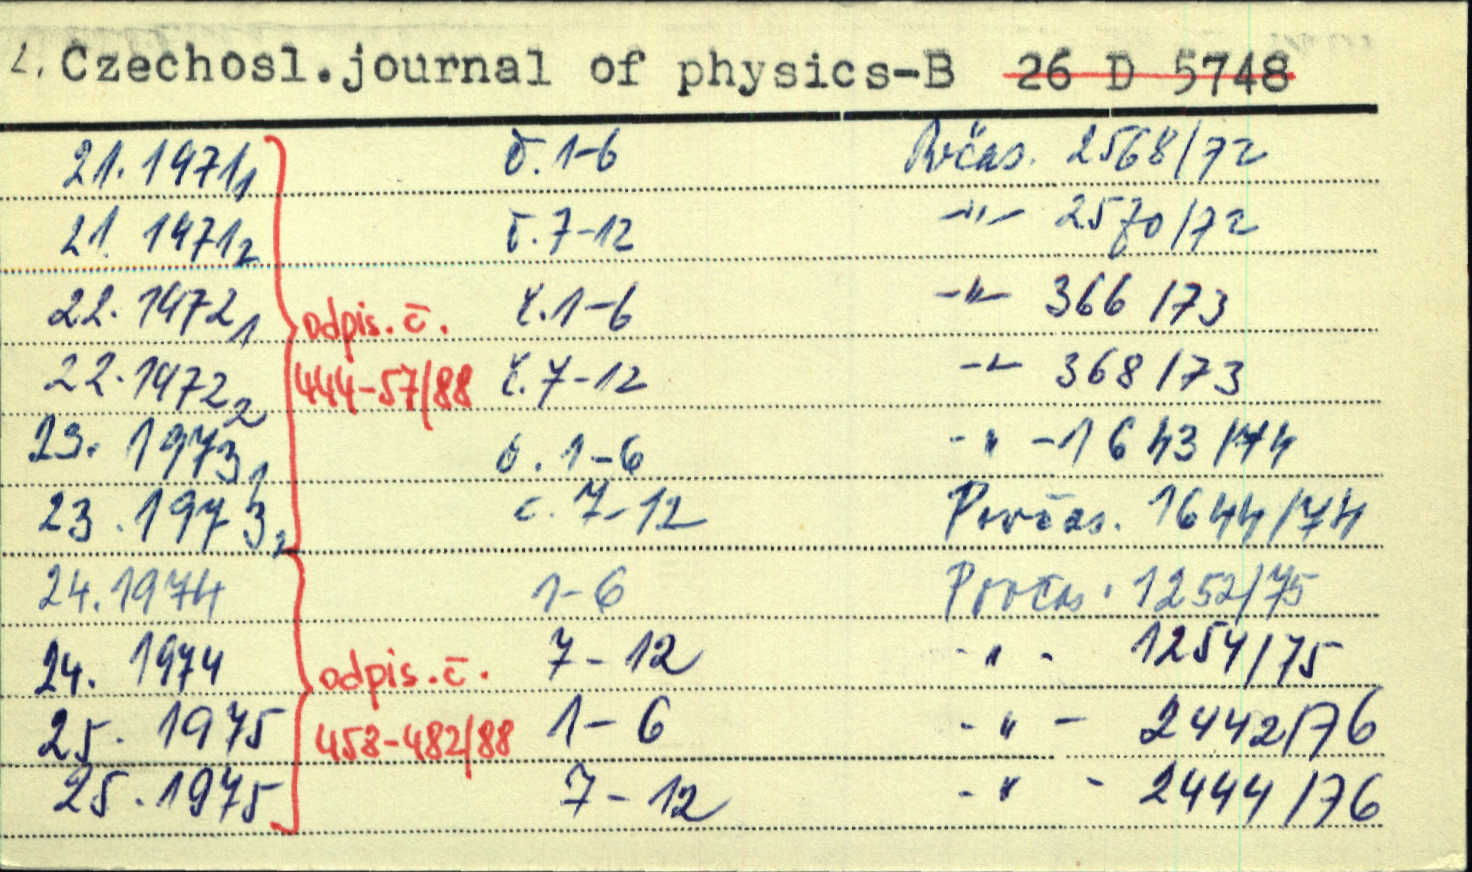 2. Czechosl.journal of physics-B 26 D 5748
21. 1971₁ č. 1-6 Pvčas. 2568/72
21. 1971₂ č. 7-12 -"- 2570/72
22. 1972₁ č. 1-6 -"- 366/73
odpis. č.
22. 1972₂ č. 7-12 -"- 368/73
444-57/88
23. 1973₁ č. 1-6 -"- 1643/74
23. 1973₂ č. 7-12 Povčas. 1644/74
24. 1974 1-6 Povčas. 1252/75
24. 1974 7-12 -"- 1254/75
odpis. č.
25. 1975 1-6 -"- 2442/76
458-482/88
25. 1975 7-12 -"- 2444/76